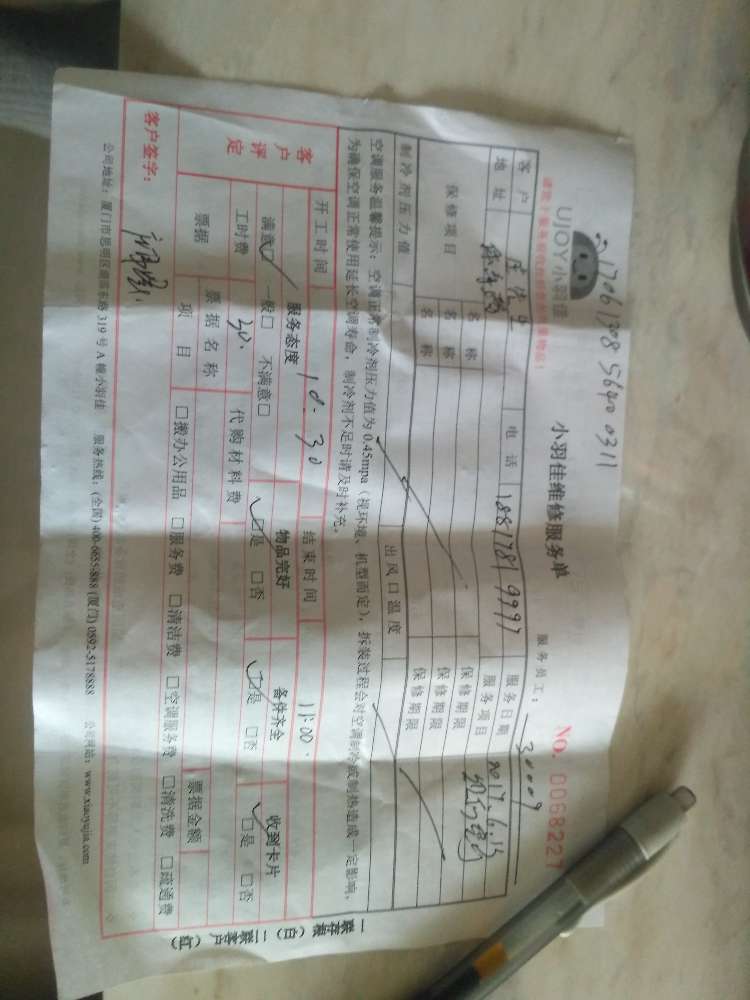 170613085640 0311
UJOY小羽佳
小羽佳维修服务单
NO. 0068227
服务员工： 30009
客户 电话 18817819997 服务日期 2017.6.15
地址 服务项目
保修项目 名称 保修期限
名称 保修期限
名称 保修期限
制冷剂压力值 出风口温度
空调服务温馨提示：空调正常制冷剂压力值为0.45mpa（视环境、机型而定），拆装过程会对空调制冷或制热造成一定影响，
为确保空调正常使用延长空调寿命，制冷剂不足时请及时补充。
开工时间 10:30 结束时间 11:00
客户评定 服务态度 物品完好 备件齐全 收到卡片
满意□ 一般□ 不满意□ □是 □否 □是 □否 □是 □否
工时费 30. 代购材料费
票据 票据名称 票据金额
项目 □搬办公用品 □服务费 □清洁费 □空调服务费 □清洗费 □疏通费
客户签字：
公司地址：厦门市思明区 319号A幢小羽佳 服务热线：(全国)400-6655-888 (厦门)0592-5178888 公司网站：www.xiaoyujia.com
一联存根（白） 二联客户（红）